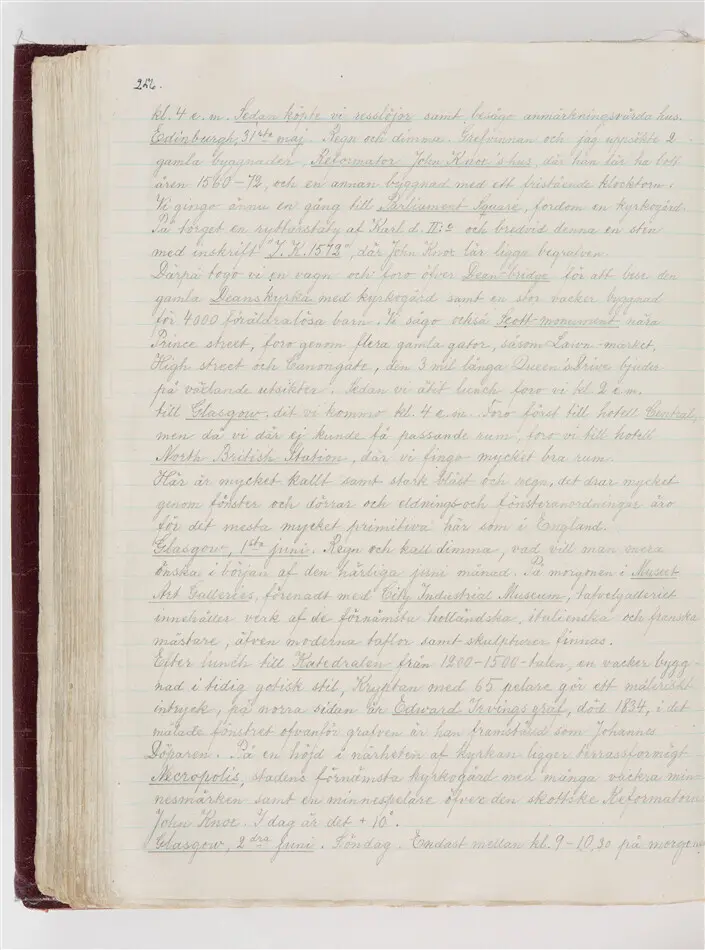 226.
kl. 4 e. m. Sedan köpte vi resslöjor samt besågo anmärkningsvärda hus.
Edinburgh, 31sta maj. Regn och dimma. Grefvinnan och jag uppsökte 2
gamla byggnader, Reformator John Knox's hus, där han lär ha bott
åren 1560-72, och en annan byggnad med ett fristående klocktorn.
Vi gingo ännu en gång till Parliament Square, fordom en kyrkogård.
På torget en ryttarstaty af Karl d. II:s och bredvid denna en sten
med inskrift "J. K. 1572", där John Knox lär ligga begrafven.
Därpå togo vi en vagn och foro öfver Dean-bridge för att bese den
gamla Deanskyrka med kyrkogård samt en stor vacker byggnad
för 4000 föräldralösa barn. Vi sågo också Scott-monument nära
Prince street, foro genom flera gamla gator, såsom Lawn-market,
High street och Canongate, den 3 mil långa Queen's Drive bjuder
på växlande utsikter. Sedan vi ätit lunch foro vi kl. 2 e. m.
till Glasgow, dit vi kommo kl. 4 e. m. Foro först till hotell Central,
men då vi där ej kunde få passande rum, foro vi till hotell
North British Station, där vi fingo mycket bra rum.
Här är mycket kallt samt stark blåst och regn, det drar mycket
genom fönster och dörrar och eldnings-och fönsteranordningar äro
för det mesta mycket primitiva här som i England.
Glasgow, 1sta juni. Regn och kall dimma, vad vill man mera
önska i början af den härliga juni månad. På morgonen i Museet
Art Galleries, förenadt med City Industrial Museum, tafvelgalleriet
innehåller verk af de förnämsta holländska, italienska och franska
mästare, äfven moderna taflor samt skulpturer finnas.
Efter lunch till Katedralen från 1200-1500-talen, en vacker bygg-
nad i tidig gotisk stil, Kryptan med 65 pelare gör ett måleriskt
intryck, på norra sidan är Edward Irvings graf, död 1834, i det
målade fönstret ofvanför grafven är han framställd som Johannes
Döparen. På en höjd i närheten af kyrkan ligger terrassformigt
Necropolis, stadens förnämsta kyrkogård med många vackra min-
nesmärken samt en minnespelare öfver den skottske Reformatorn
John Knox. I dag är det + 10°.
Glasgow, 2dra juni. Söndag. Endast mellan kl. 9-10,30 på morgonen